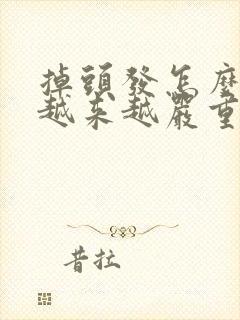 掉頭發怎麼
越來越嚴重
昔拉